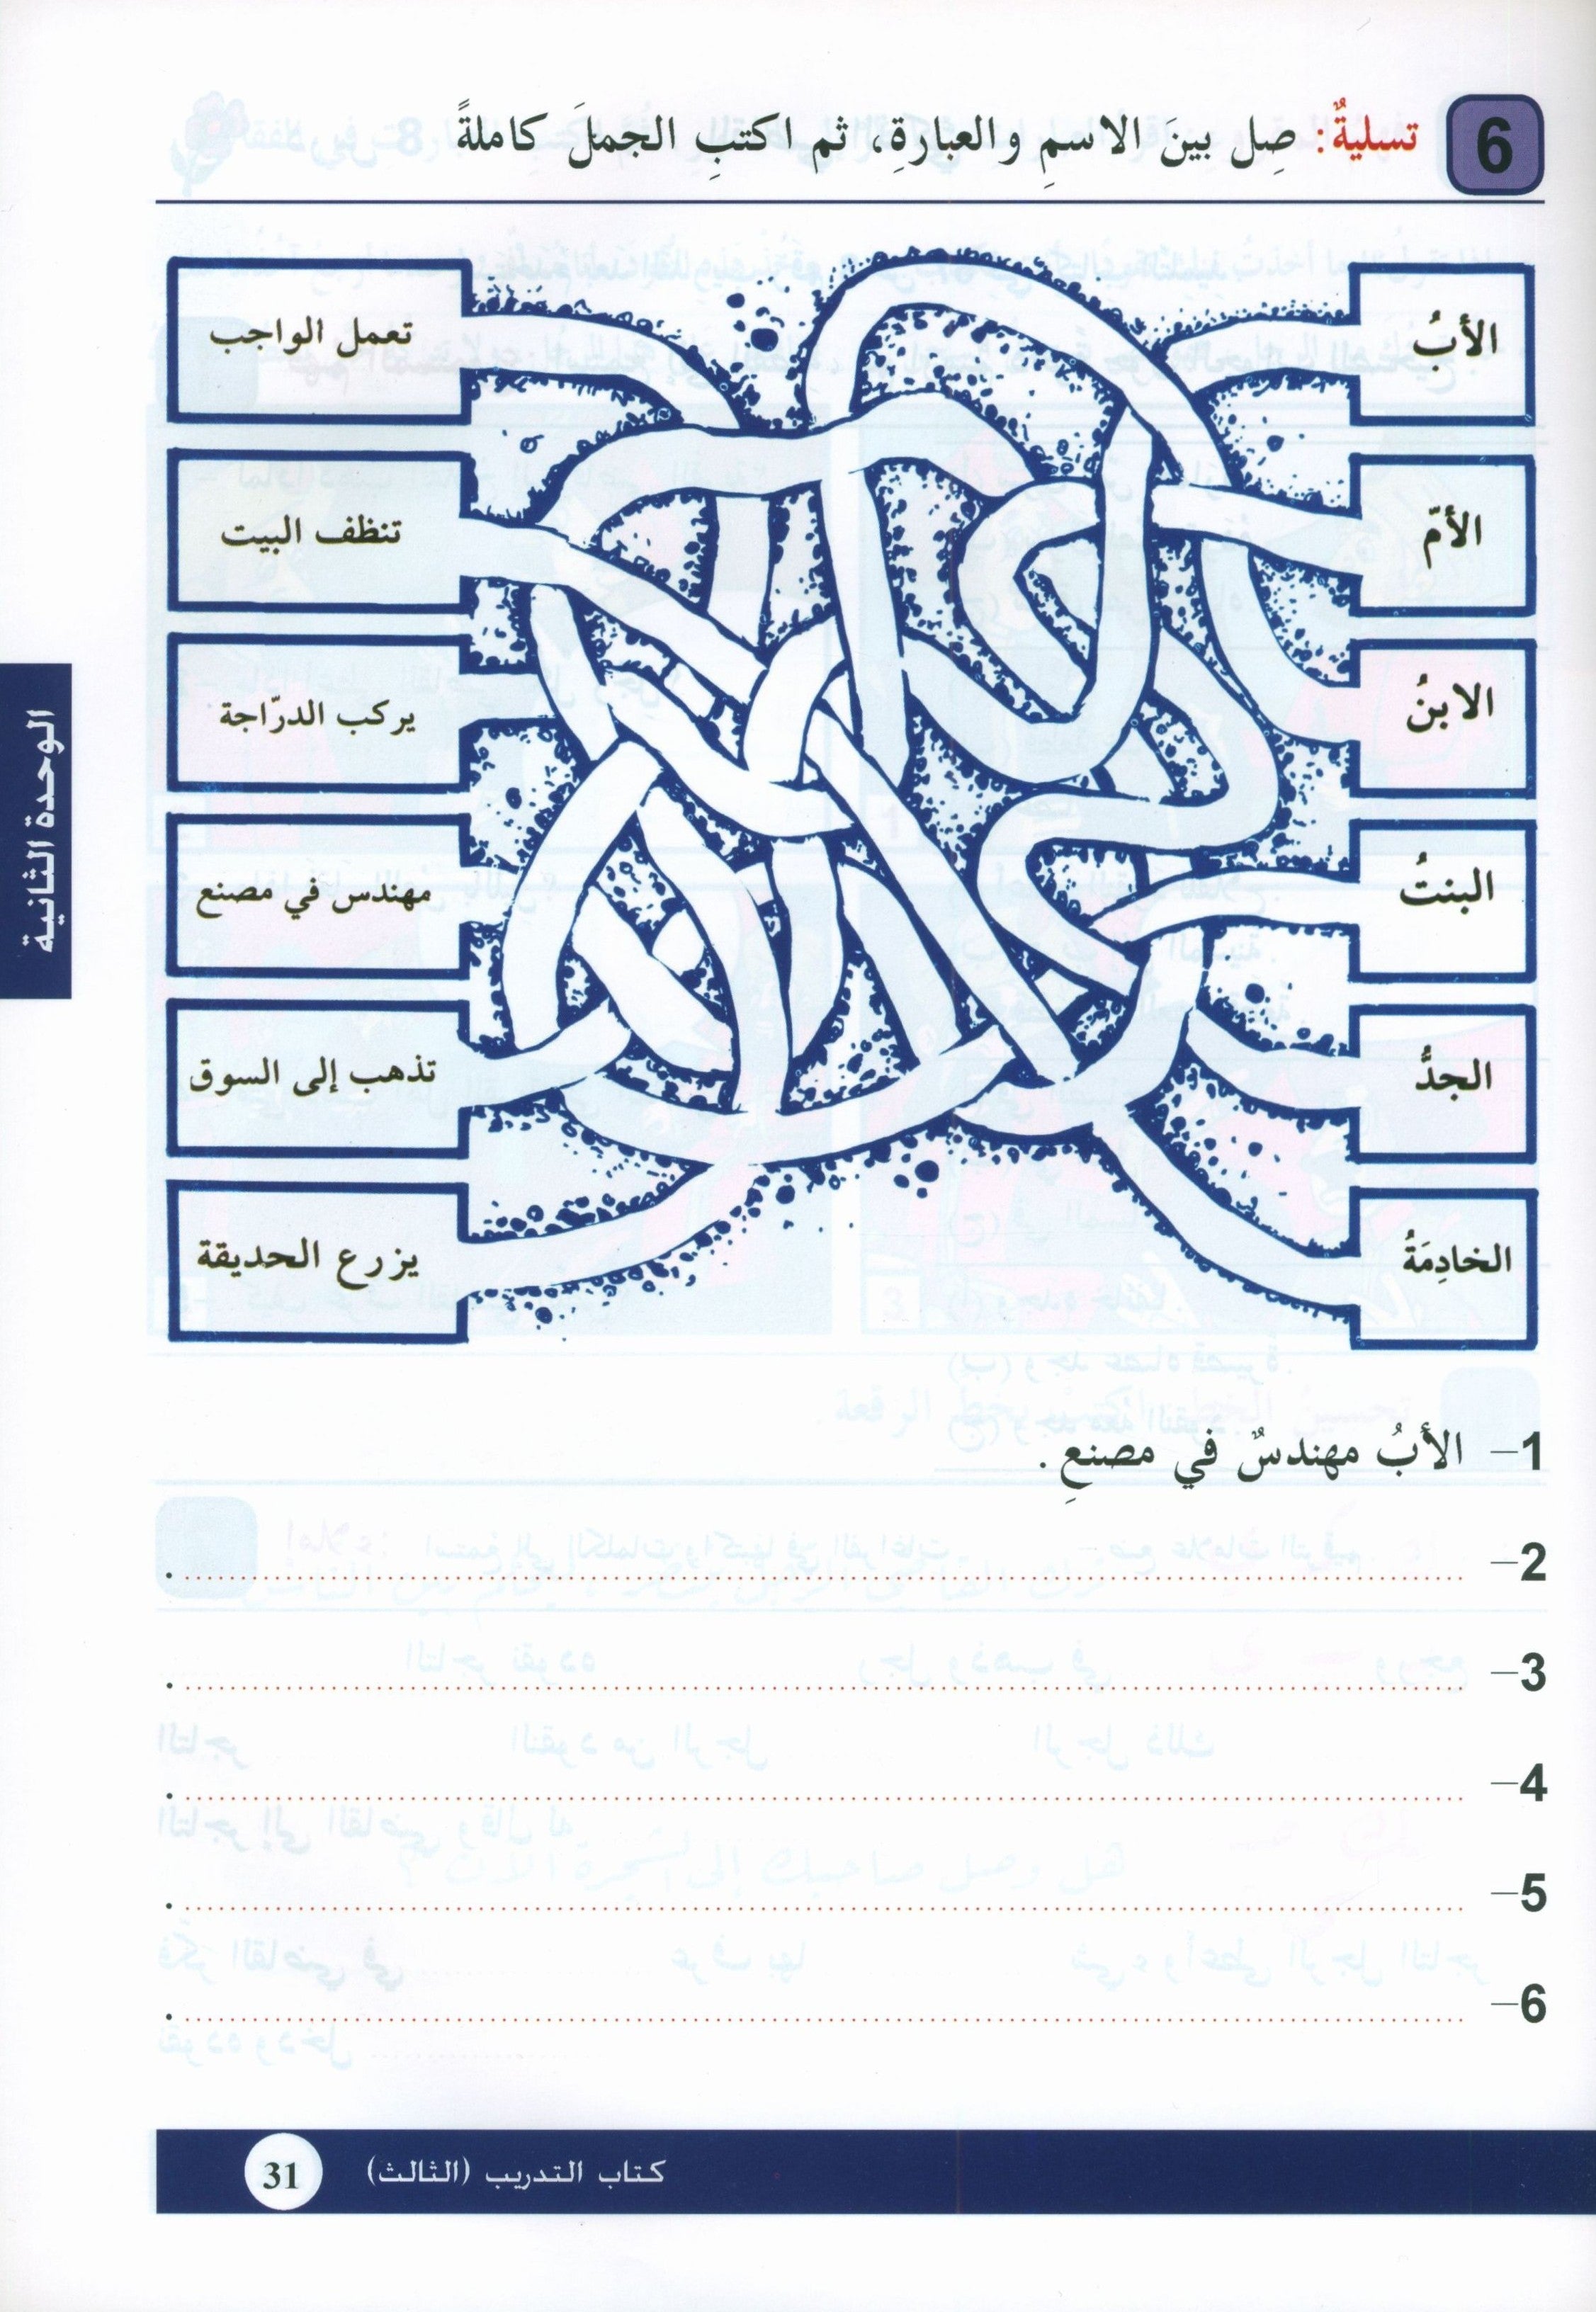 6 تسليةٌ: صِل بينَ الاسمِ والعبارةِ، ثم اكتبِ الجملَ كاملةً
الأبُ
الأمّ
الابنُ
البنتُ
الجدُّ
الخادِمَةُ
تعمل الواجب
تنظف البيت
يركب الدرّاجة
مهندس في مصنع
تذهب إلى السوق
يزرع الحديقة
1– الأبُ مهندسٌ في مصنعِ.
2–
3–
4–
5–
6–
الوحدة الثانية
كتاب التدريب (الثالث) 31